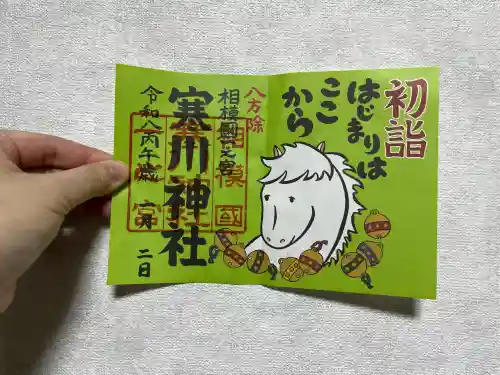 初詣
はじまりは
ここ
から
八方除
相模國一之宮
寒川神社
令和八丙午歳 一月 二日
相模國